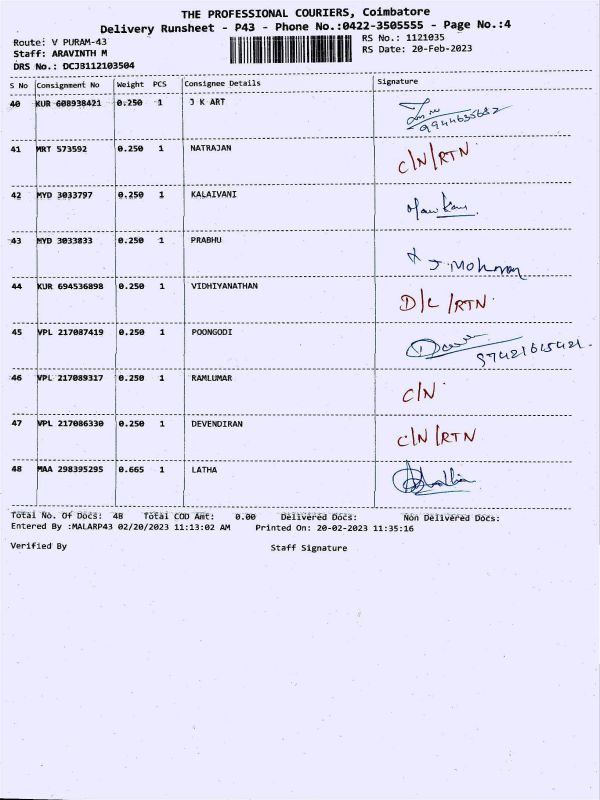 THE PROFESSIONAL COURIERS, Coimbatore
Delivery Runsheet - P43 - Phone No.:0422-3505555 - Page No.:4
Route: V PURAM-43 RS No.: 1121035
Staff: ARAVINTH M RS Date: 20-Feb-2023
DRS No.: DCJB112103504
S No Consignment No Weight PCS Consignee Details Signature
40 KUR 608938421 0.250 1 J K ART
41 MRT 573592 0.250 1 NATRAJAN C/N/RTN
42 MYD 3033797 0.250 1 KALAIVANI
43 MYD 3033833 0.250 1 PRABHU
44 KUR 694536898 0.250 1 VIDHIYANATHAN D/L /RTN
45 VPL 217087419 0.250 1 POONGODI
46 VPL 217089317 0.250 1 RAMLUMAR C/N
47 VPL 217086330 0.250 1 DEVENDIRAN C/N/RTN
48 MAA 298395295 0.665 1 LATHA
Total No. Of Docs: 48 Total COD Amt: 0.00 Delivered Docs: Non Delivered Docs:
Entered By :MALARP43 02/20/2023 11:13:02 AM Printed On: 20-02-2023 11:35:16
Verified By Staff Signature